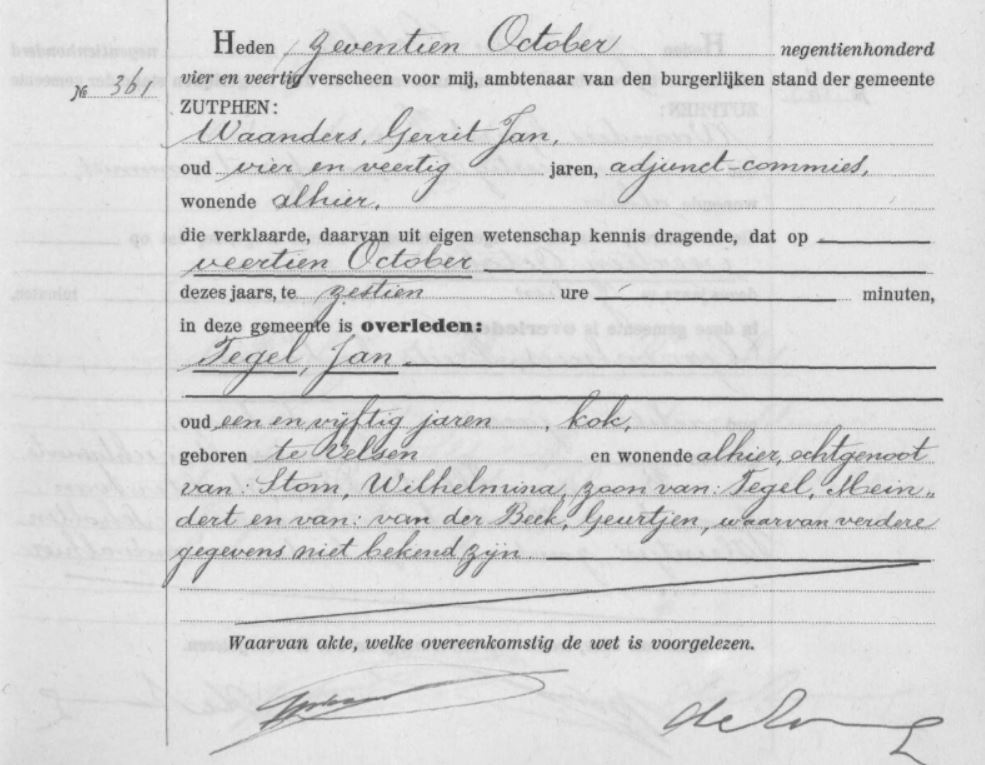 Heden zeventien October negentienhonderd
vier en veertig verscheen voor mij, ambtenaar van den burgerlijken stand der gemeente
№ 361
ZUTPHEN:
Waanders, Gerrit Jan,
oud vier en veertig jaren, adjunct-commies,
wonende alhier,
die verklaarde, daarvan uit eigen wetenschap kennis dragende, dat op
veertien October
dezes jaars, te zestien ure minuten,
in deze gemeente is overleden:
Tegel, Jan
oud een en vijftig jaren, kok,
geboren te Velsen en wonende alhier, echtgenoot
van: Stom, Wilhelmina, zoon van: Tegel, Mein„
dert en van: van der Beek, Geurtjen, waarvan verdere
gegevens niet bekend zijn
Waarvan akte, welke overeenkomstig de wet is voorgelezen.